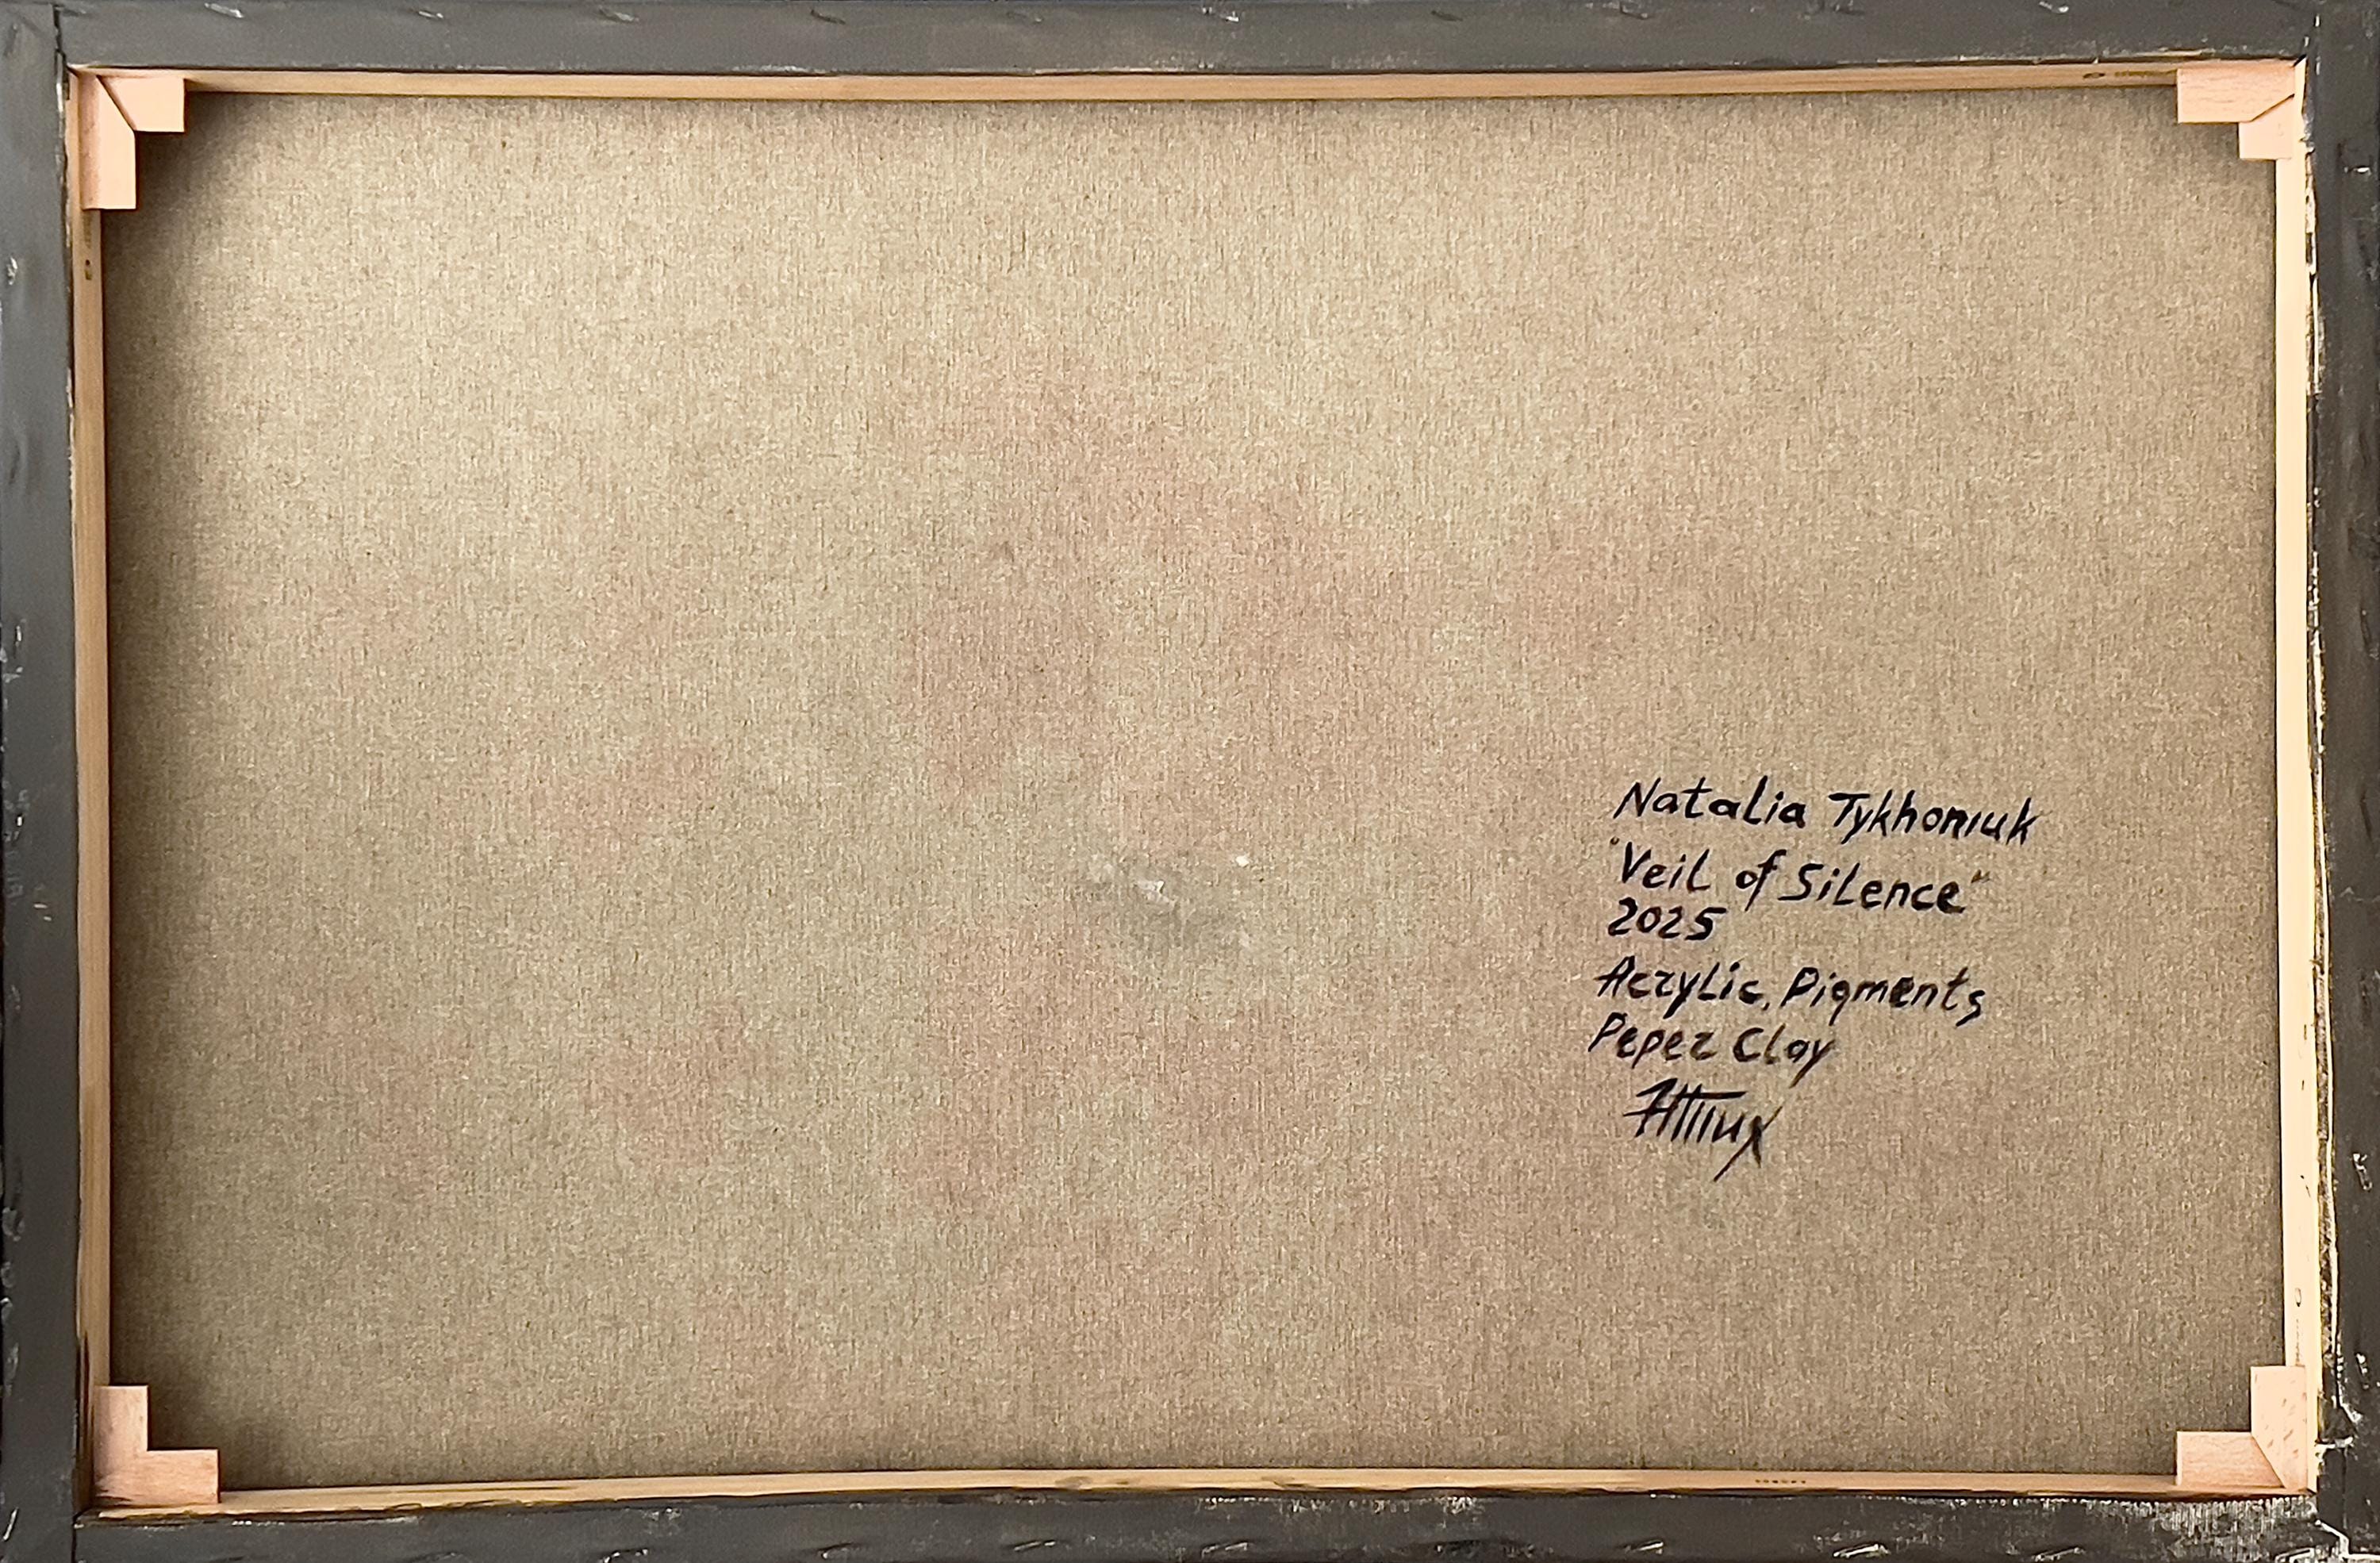 Natalia Tykhoniuk
"Veil of Silence"
2025
Acrylic, Pigments
Peper Clay